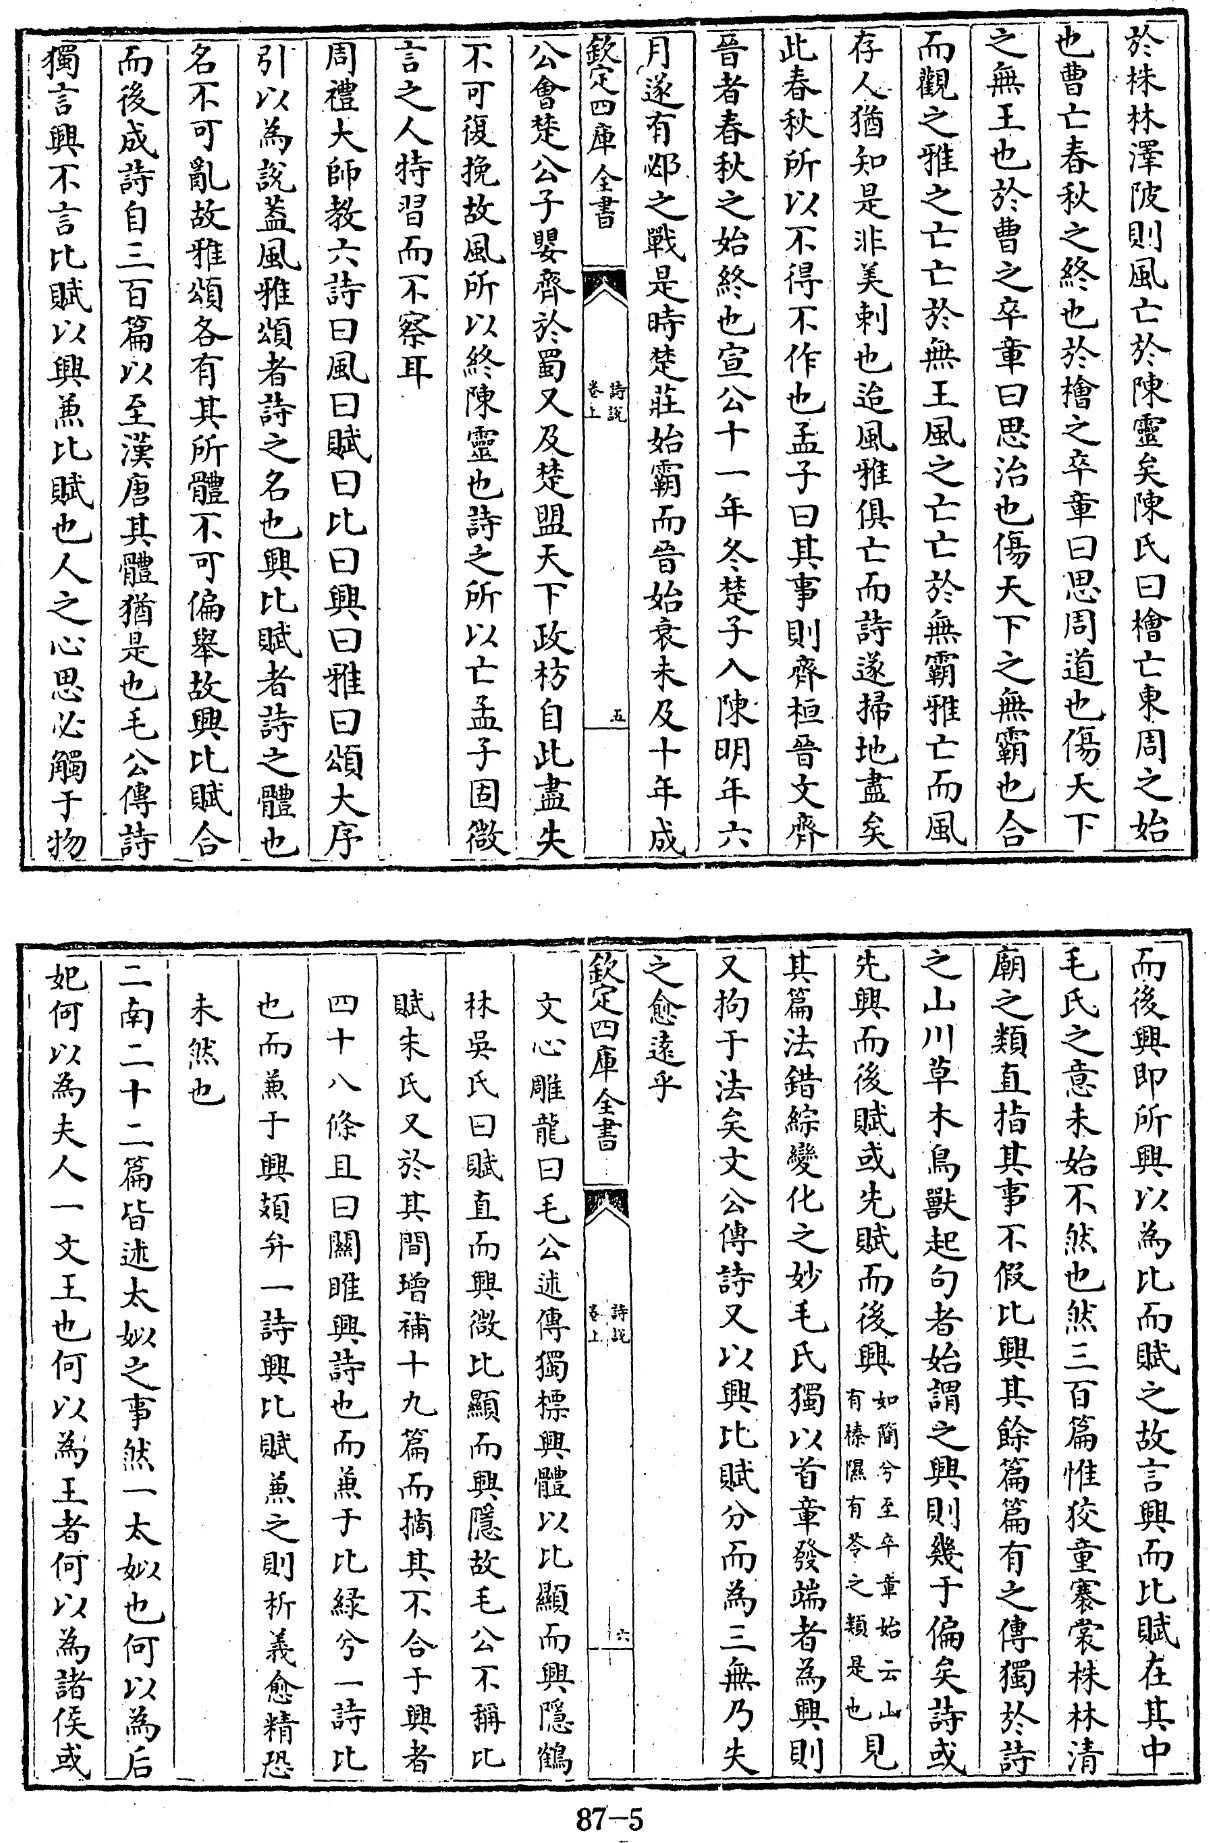 於株林澤陂則風亡於陳靈矣陳氏曰檜亡東周之始
也曹亡春秋之終也於檜之卒章曰思周道也傷天下
之無王也於曹之卒章曰思治也傷天下之無霸也合
而觀之雅之亡亡於無王風之亡亡於無霸雅亡而風
存人猶知是非美刺也迨風雅俱亡而詩遂掃地盡矣
此春秋所以不得不作也孟子曰其事則齊桓晉文齊
晉者春秋之始終也宣公十一年冬楚子入陳明年六
月遂有邲之戰是時楚莊始霸而晉始衰未及十年成
欽定四庫全書
詩說
卷上
五
公會楚公子嬰齊於蜀又及楚盟天下政枋自此盡失
不可復挽故風所以終陳靈也詩之所以亡孟子固微
言之人特習而不察耳
周禮大師教六詩曰風曰賦曰比曰興曰雅曰頌大序
引以為說蓋風雅頌者詩之名也興比賦者詩之體也
名不可亂故雅頌各有其所體不可偏舉故興比賦合
而後成詩自三百篇以至漢唐其體猶是也毛公傳詩
獨言興不言比賦以興兼比賦也人之心思必觸于物
而後興即所興以為比而賦之故言興而比賦在其中
毛氏之意未始不然也然三百篇惟狡童褰裳株林清
廟之類直指其事不假比興其餘篇篇有之傳獨於詩
之山川草木鳥獸起句者始謂之興則幾于偏矣詩或
先興而後賦或先賦而後興如簡兮至卒章始云山有榛隰有苓之類是也見
其篇法錯綜變化之妙毛氏獨以首章發端者為興則
又拘于法矣文公傳詩又以興比賦分而為三無乃失
之愈遠乎
欽定四庫全書
詩說
卷上
六
文心雕龍曰毛公述傳獨標興體以比顯而興隱鶴
林吳氏曰賦直而興微比顯而興隱故毛公不稱比
賦朱氏又於其間增補十九篇而摘其不合于興者
四十八條且曰關雎興詩也而兼于比綠兮一詩比
也而兼于興頍弁一詩興比賦兼之則析義愈精恐
未然也
二南二十二篇皆述太姒之事然一太姒也何以為后
妃何以為夫人一文王也何以為王者何以為諸侯或
87-5